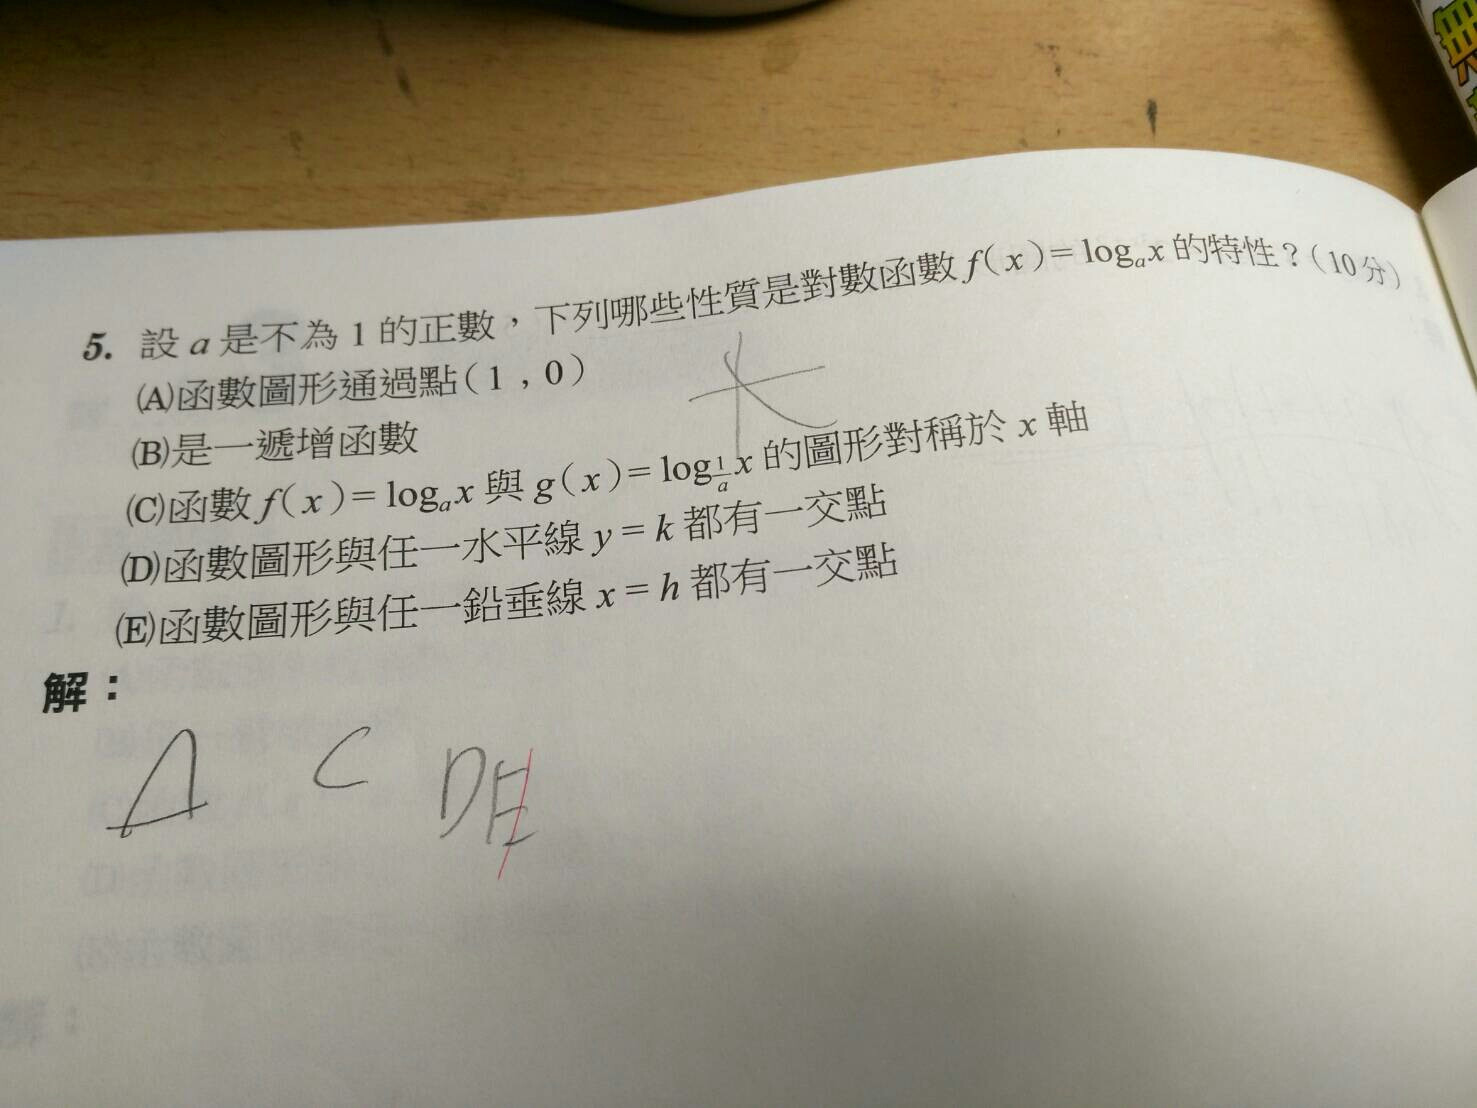 無
5. 設 a 是不為 1 的正數，下列哪些性質是對數函數 f(x)=logₐx 的特性？(10分)
(A)函數圖形通過點(1，0)
(B)是一遞增函數
(C)函數 f(x)=logₐx 與 g(x)=log_{1/a}x 的圖形對稱於 x 軸
(D)函數圖形與任一水平線 y=k 都有一交點
(E)函數圖形與任一鉛垂線 x=h 都有一交點
解：
A C DE